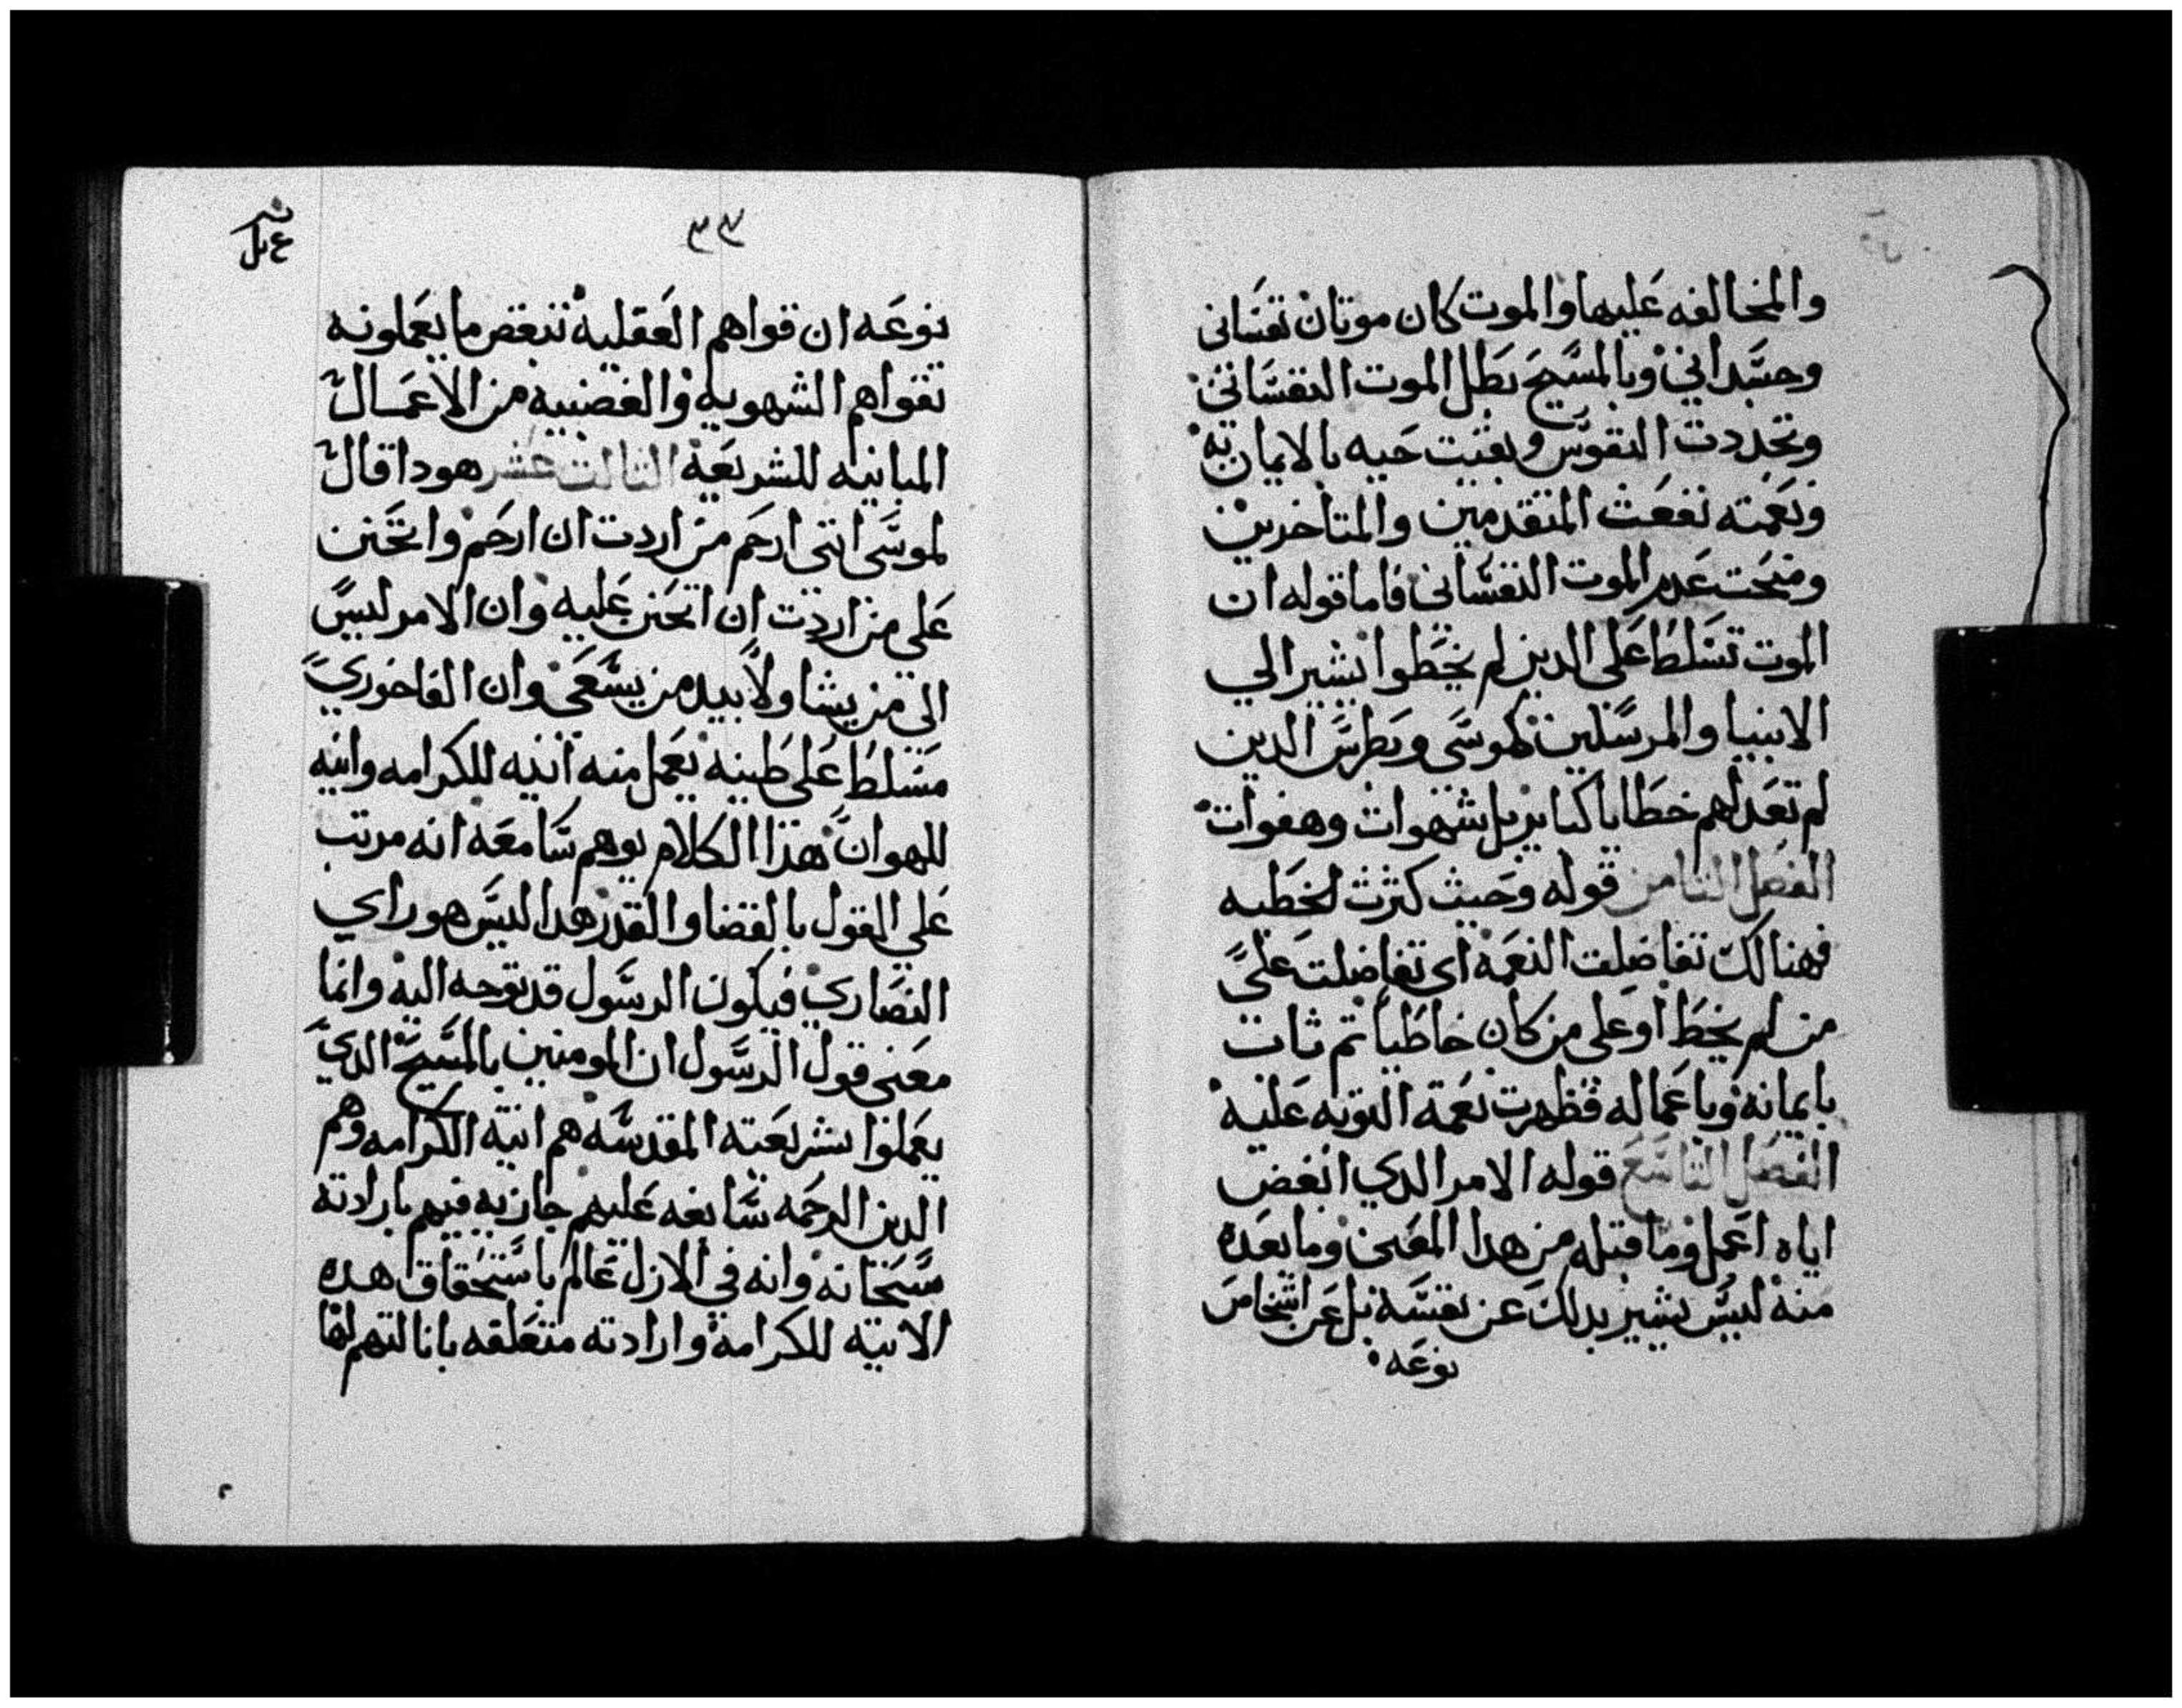 والمخالفه عليها والموت كان موتان نفسانى
وجسدانى وبالمسيح بطل الموت النفسانى
وتجددت النفوس وبقيت حيه بالايمان به
ونعمته نفعت المتقدمين والمتاخرين
ومنحت عدم الموت النفسانى فاما قوله ان
الموت تسلط على الدين لم يخطوا يشير الي
الانبيا والمرسلين كموسى وبطرس الدين
لم تعد لهم خطايا كبايربل شهوات وهفوات
الفصل الثامن قوله وحيث كثرت الخطيه
فهنالك تفاضلت النعمه اى تفاضلت على
من لم يخط او على من كان خاطيا ثم ثاب
بايمانه وباعماله فظهرت نعمة التوبه عليه
الفصل التاسع قوله الامر الدي ابغض
اياه اعمل وما قبله من هدا المعنى وما بعده
منه ليس يشير بدلك عن نفسه بل عن اشخاص
نوعه
٣٣
نوعه ان قواهم العقليه تبغض ما يعملونه
بقواهم الشهويه والغضبيه من الاعمال
المباينه للشريعه الثالث عشر هودا قال
لموسى اننى ارحم من اردت ان ارحم واتحنن
على من اردت ان اتحنن عليه وان الامر ليس
الى من يشا ولا بيد من يسعى وان الفاخوري
مسلط على طينه يعمل منه انيه للكرامه وانيه
للهوان هذا الكلام يوهم سامعه انه مرتب
على القول بالقضا والقدر هدا ليس هو راي
النصاري فيكون الرسول قد توجه اليه وانما
معنى قول الرسول ان المومنين بالمسيح الدي
يعملوا بشريعته المقدسه هم انية الكرامه وهم
الدين الرحمه سابغه عليهم جازيه فيهم بارادته
سبحانه وانه في الازل عالم باستحقاق هده
الانيه للكرامه وارادته متعلقه بانالتهم لها